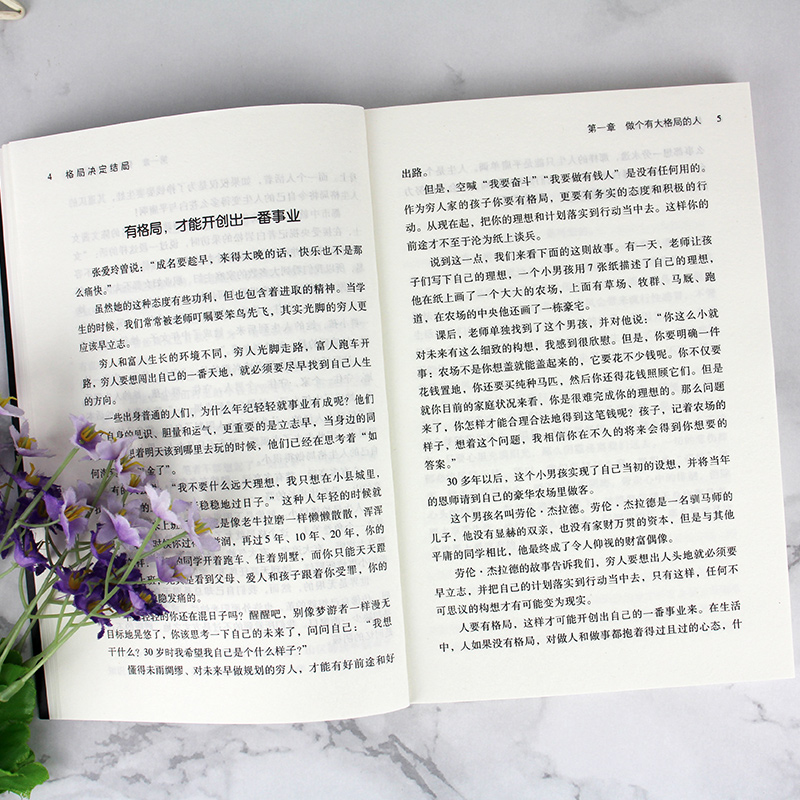 4 格局决定结局
有格局，才能开创出一番事业
张爱玲曾说：“成名要趁早，来得太晚的话，快乐也不是那
么痛快。”
虽然她的这种态度有些功利，但也包含着进取的精神。当学
生的时候，我们常常被老师叮嘱要笨鸟先飞，其实光脚的穷人更
应该早立志。
穷人和富人生长的环境不同，穷人光脚走路，富人跑车开
路，穷人要想闯出自己的一番天地，就必须要尽早找到自己人生
的方向。
一些出身普通的人们，为什么年纪轻轻就事业有成呢？他们
自身的见识、胆量和运气，更重要的是立志早，当身边的同
想着明天该到哪里去玩的时候，他们已经在思考着“如
金了”。
“我不要什么远大理想，我只想在小县城里，
稳稳地过日子。”这种人年轻的时候就
也是像老牛拉磨一样懒懒散散，浑浑
时候你过得滋润，再过5年、10年、20年，你的
的同学开着跑车、住着别墅，而你只能天天蹬
上班，是看到父母、爱人和孩子跟着你受罪，你的
隐隐发痛的。
轻轻的你还在混日子吗？醒醒吧，别像梦游者一样漫无
目标地晃悠了，你该思考一下自己的未来了，问问自己：“我想
干什么？30岁时我希望我自己是个什么样子？”
懂得未雨绸缪、对未来早做规划的穷人，才能有好前途和好
第一章 做个有大格局的人 5
出路。
但是，空喊“我要奋斗”“我要做有钱人”是没有任何用的。
作为穷人家的孩子你要有格局，更要有务实的态度和积极的行
动。从现在起，把你的理想和计划落实到行动当中去。这样你的
前途才不至于沦为纸上谈兵。
说到这一点，我们来看下面的这则故事。有一天，老师让孩
子们写下自己的理想，一个小男孩用7张纸描述了自己的理想，
他在纸上画了一个大大的农场，上面有草场、牧群、马厩、跑
道，在农场的中央他还画了一栋豪宅。
课后，老师单独找到了这个男孩，并对他说：“你这么小就
对未来有这么细致的构想，我感到很欣慰。但是，你要明确一件
事：农场不是你想盖就能盖起来的，它要花不少钱呢。你不仅要
花钱置地，你还要买纯种马匹，然后你还得花钱照顾它们。但是
就你目前的家庭状况来看，你是很难完成你的理想的。那么问题
来了，你怎样才能合理合法地得到这笔钱呢？孩子，记着农场的
样子，想着这个问题，我相信你在不久的将来会得到你想要的
答案。”
30多年以后，这个小男孩实现了自己当初的设想，并将当年
的恩师请到自己的豪华农场里做客。
这个男孩名叫劳伦·杰拉德。劳伦·杰拉德是一名驯马师的
儿子，他没有显赫的双亲，也没有家财万贯的资本，但是与其他
平庸的同学相比，他最终成了令人仰视的财富偶像。
劳伦·杰拉德的故事告诉我们，穷人要想出人头地就必须要
早立志，并把自己的计划落实到行动当中去，只有这样，任何不
可思议的构想才有可能变为现实。
人要有格局，这样才可能开创出自己的一番事业来。在生活
中，人如果没有格局，对做人和做事都抱着得过且过的心态，什